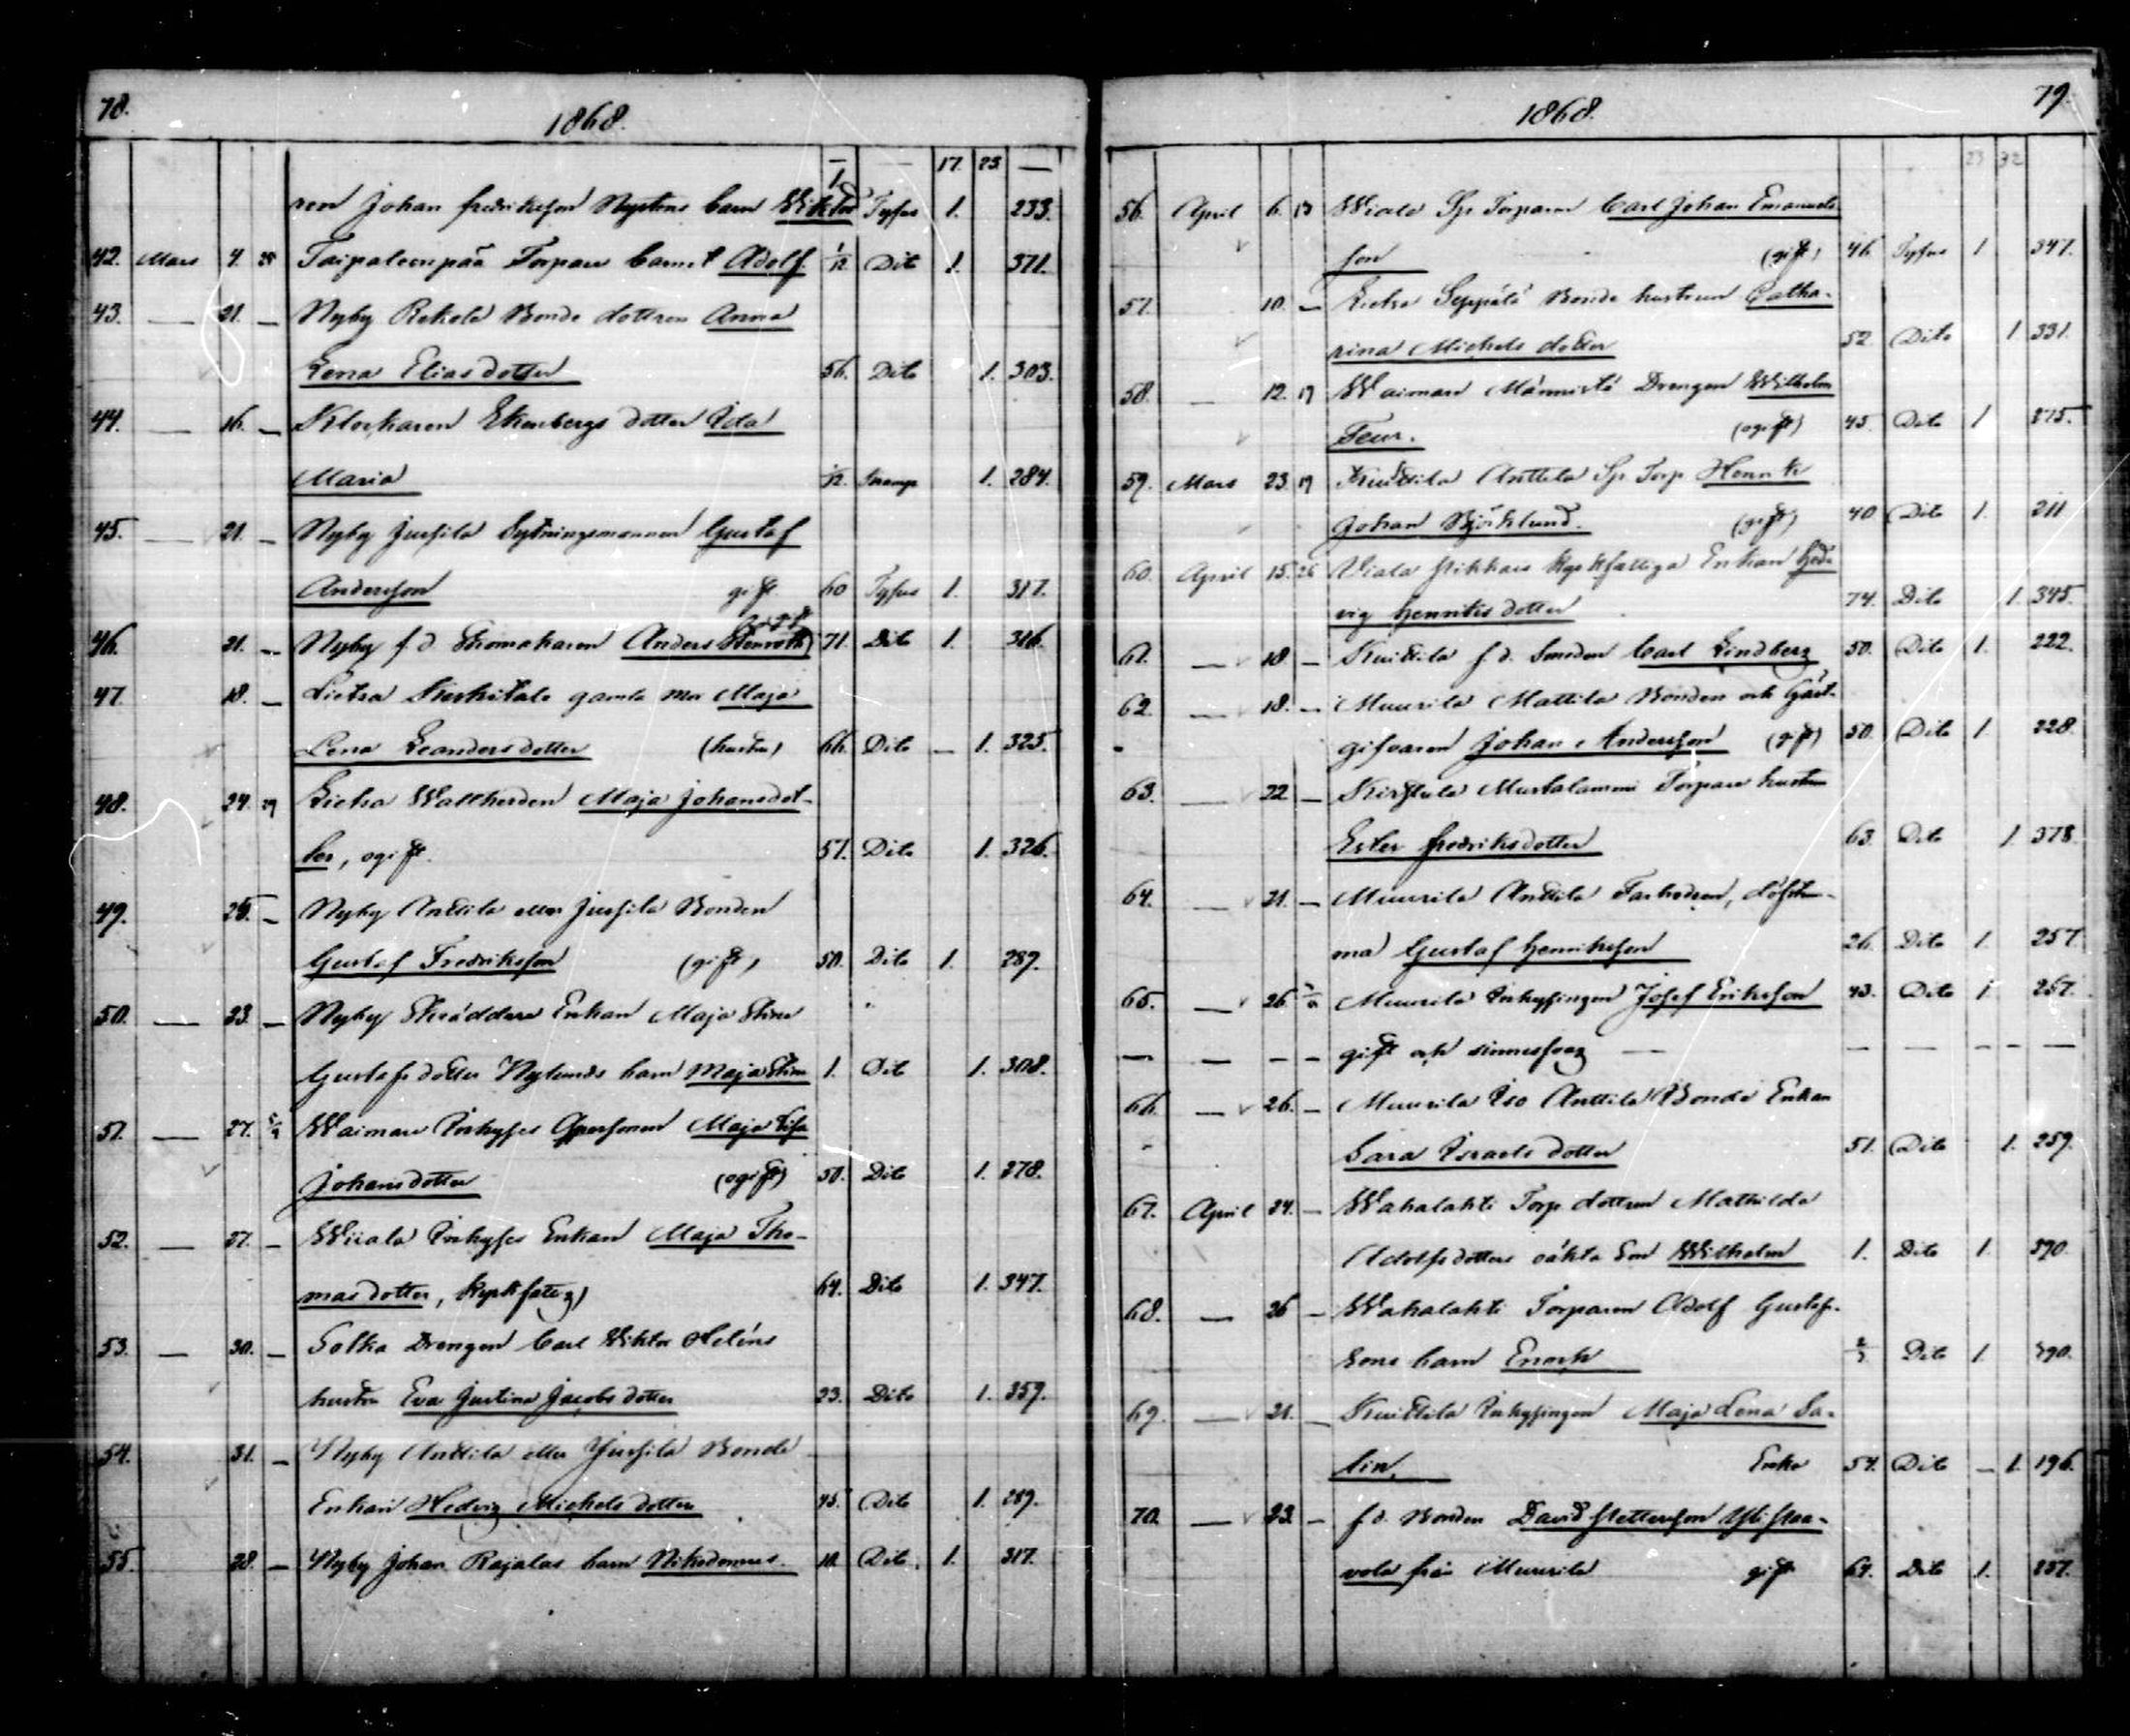 78. 1868.
17. 23. —
ren Johan Fredriksson Nystens barn Viktor 1 Tyfus 1. 233.
42. Mars 4. Taipaleenpää Torpare barnet Adolf. 1/12 Dito 1. 371.
43. — 21. — Nyby Rekola Bonde dottren Anna
Lena Eliasdotter 56. Dito 1. 303.
44. — 16. — Klockaren Ekenbergs dotter Ida
Maria /12. Kramp 1. 284.
45. — 21. — Nyby Jussila Sytningsmannen Gustaf
Andersson gift 60 Tyfus 1. 317.
46. 21. — Nyby f.d. Skomakaren Anders Stenroth 71. Dito 1. 316.
47. 18. — Lietsa gamla mor Maja
Lena Leandersdotter (hustru) 66. Dito — 1. 325.
48. 24. 29 Lietsa Maja Johansdot-
ter, ogift. 57. Dito 1. 326.
49. 25. — Nyby Anttila eller Jussila Bonden
Gustaf Fredriksson (gift) 50. Dito 1. 289.
50. — 23. — Nyby Skräddare Enkan Maja Stina
Gustafsdotter Nylunds barn Maja Stina 1. Dito 1. 308.
51. — 27. Waimare Inhyses Qpersonen Maja Lisa
Johansdotter (ogift) 50. Dito 1. 278.
52. — 27. — Wiiala Inhyses Enkan Maja Tho-
masdotter, kyrkfattig) 64. Dito 1. 347.
53. — 30. — Solka Drengen Carl Viktor Heléns
hustru Eva Justina Jacobsdotter 23. Dito 1. 359.
54. 31. — Nyby Anttila eller Jussila Bonde
Enkan Hedvig Michelsdotter 45. Dito 1. 289.
55. 28. — Nyby Johan Rajalas barn Nikodemus. 10. Dito. 1. 317.
1868. 79.
23 32
56. April 6. 13 Wiala Sp. Torparn Carl Johan Emanuels
son (gift) 46 Tyfus 1 347.
57. 10. — Lietsa Seppälä Bonde hustrun Catha-
rina Michelsdotter 52. Dito 1 331.
58. — 12. 19 Waimare Männistö Drengen Wilhelm
Feur. (ogift) 45. Dito 1 275.
59. Mars 23 19 Kuittila Anttila Sp. Torp Henrik
Johan Björklund. (gift) 40 Dito 1. 211
60. April 15. 26 Wiala kyrkfattiga Enkan Hed-
vig Henriksdotter 74. Dito 1. 345.
61. — 18 — Kuittila f.d. Smeden Carl Lindberg 50. Dito 1. 222.
62. — 18. — Muurila Mattila Bonden och Gäst-
gifvaren Johan Andersson (gift) 50. Dito 1. 228.
63. — 22 — Mustalammi Torpare hustru
Ester Fredriksdotter 63. Dito 1. 378.
64. — 21. — Muurila Anttila döfstum-
ma) Gustaf Henriksson 26. Dito 1. 257.
65. — 26 Muurila Inhysingen Josef Eriksson 43. Dito 1. 267.
— — — — gift och sinnessvag — — — — — —
66. — 26. — Muurila Iso Anttila Bonde Enkan
Sara Israelsdotter 51. Dito 1. 259.
67. April 24. — Wahalahti Torp. dottren Mathilda
Adolfsdotters oäkta Son Wilhelm 1. Dito 1. 390.
68. — 26 — Wahalahti Torparen Adolf Gustafs-
sons barn Enosh Dito 1. 390.
69. — 21. — Kuittila Inhysingen Maja Lena Sa-
lin. Enka 54. Dito — 1. 196.
70. — 23. — f.d. Bonden David
vola från Muurila gift 64. Dito 1. 257.